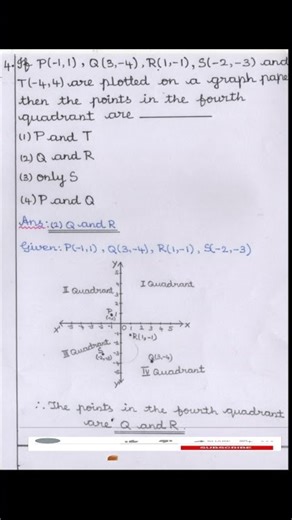 4. If P(-1,1), Q(3,-4), R(1,-1), S(-2,-3) and
T(-4,4) are plotted on a graph pape
then the points in the fourth
quadrant are
(1) P and T
(2) Q and R
(3) only S
(4) P and Q
Ans: (2) Q and R
Given: P(-1,1), Q(3,-4), R(1,-1), S(-2,-3)
Y
II Quadrant
I Quadrant
X'
0 1 2 3 4 5
X
R(1,-1)
III Quadrant
Q(3,-4)
IV Quadrant
∴ The points in the fourth quadrant
are Q and R